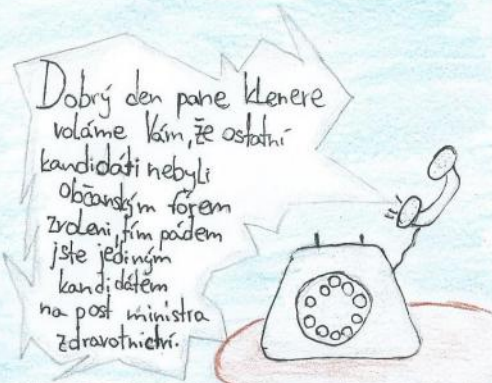 Dobrý den pane klenere
voláme Vám, že ostatní
kandidáti nebyli
občanským fórem
zvoleni, tím pádem
jste jediným
kandidátem
na post ministra
zdravotnictví.